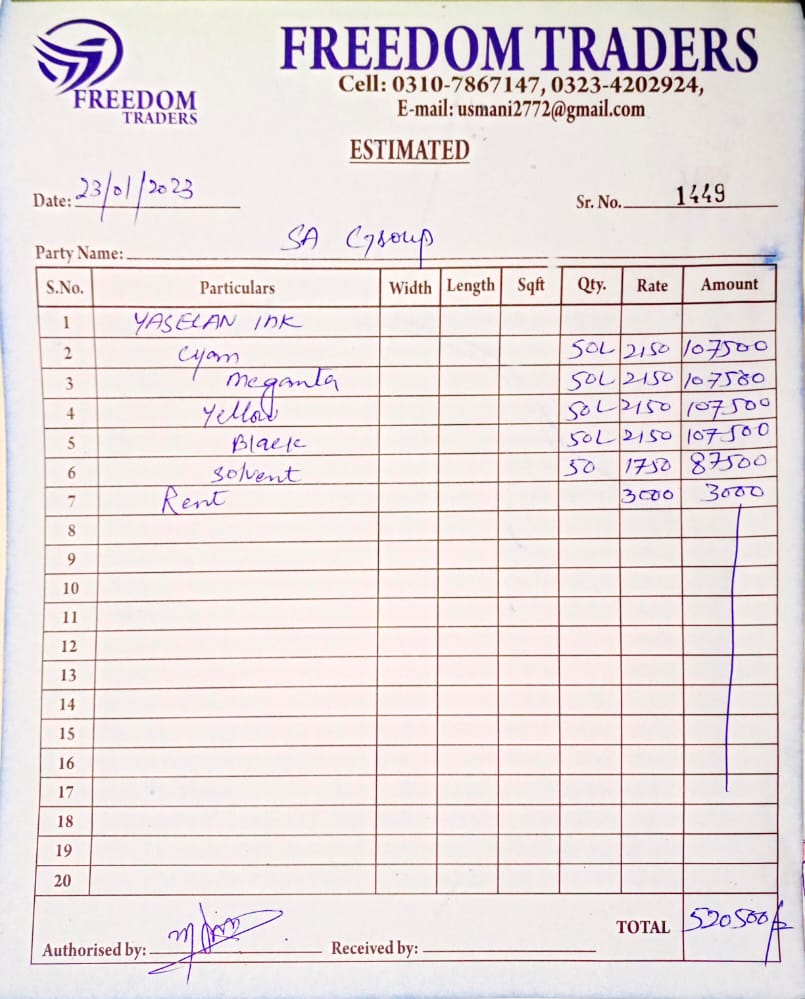 FREEDOM TRADERS
FREEDOM TRADERS
Cell: 0310-7867147, 0323-4202924,
E-mail: usmani2772@gmail.com
ESTIMATED
Date: 23/01/2023 Sr. No. 1449
Party Name: SA Group
S.No. Particulars Width Length Sqft Qty. Rate Amount
1 YASELAN INK
2 Cyan 50L 2150 107500
3 meganta 50L 2150 107500
4 Yellow 50L 2150 107500
5 Black 50L 2150 107500
6 Solvent 50 1750 87500
7 Rent 3000 3000
8
9
10
11
12
13
14
15
16
17
18
19
20
TOTAL 520500/-
Authorised by: Received by: